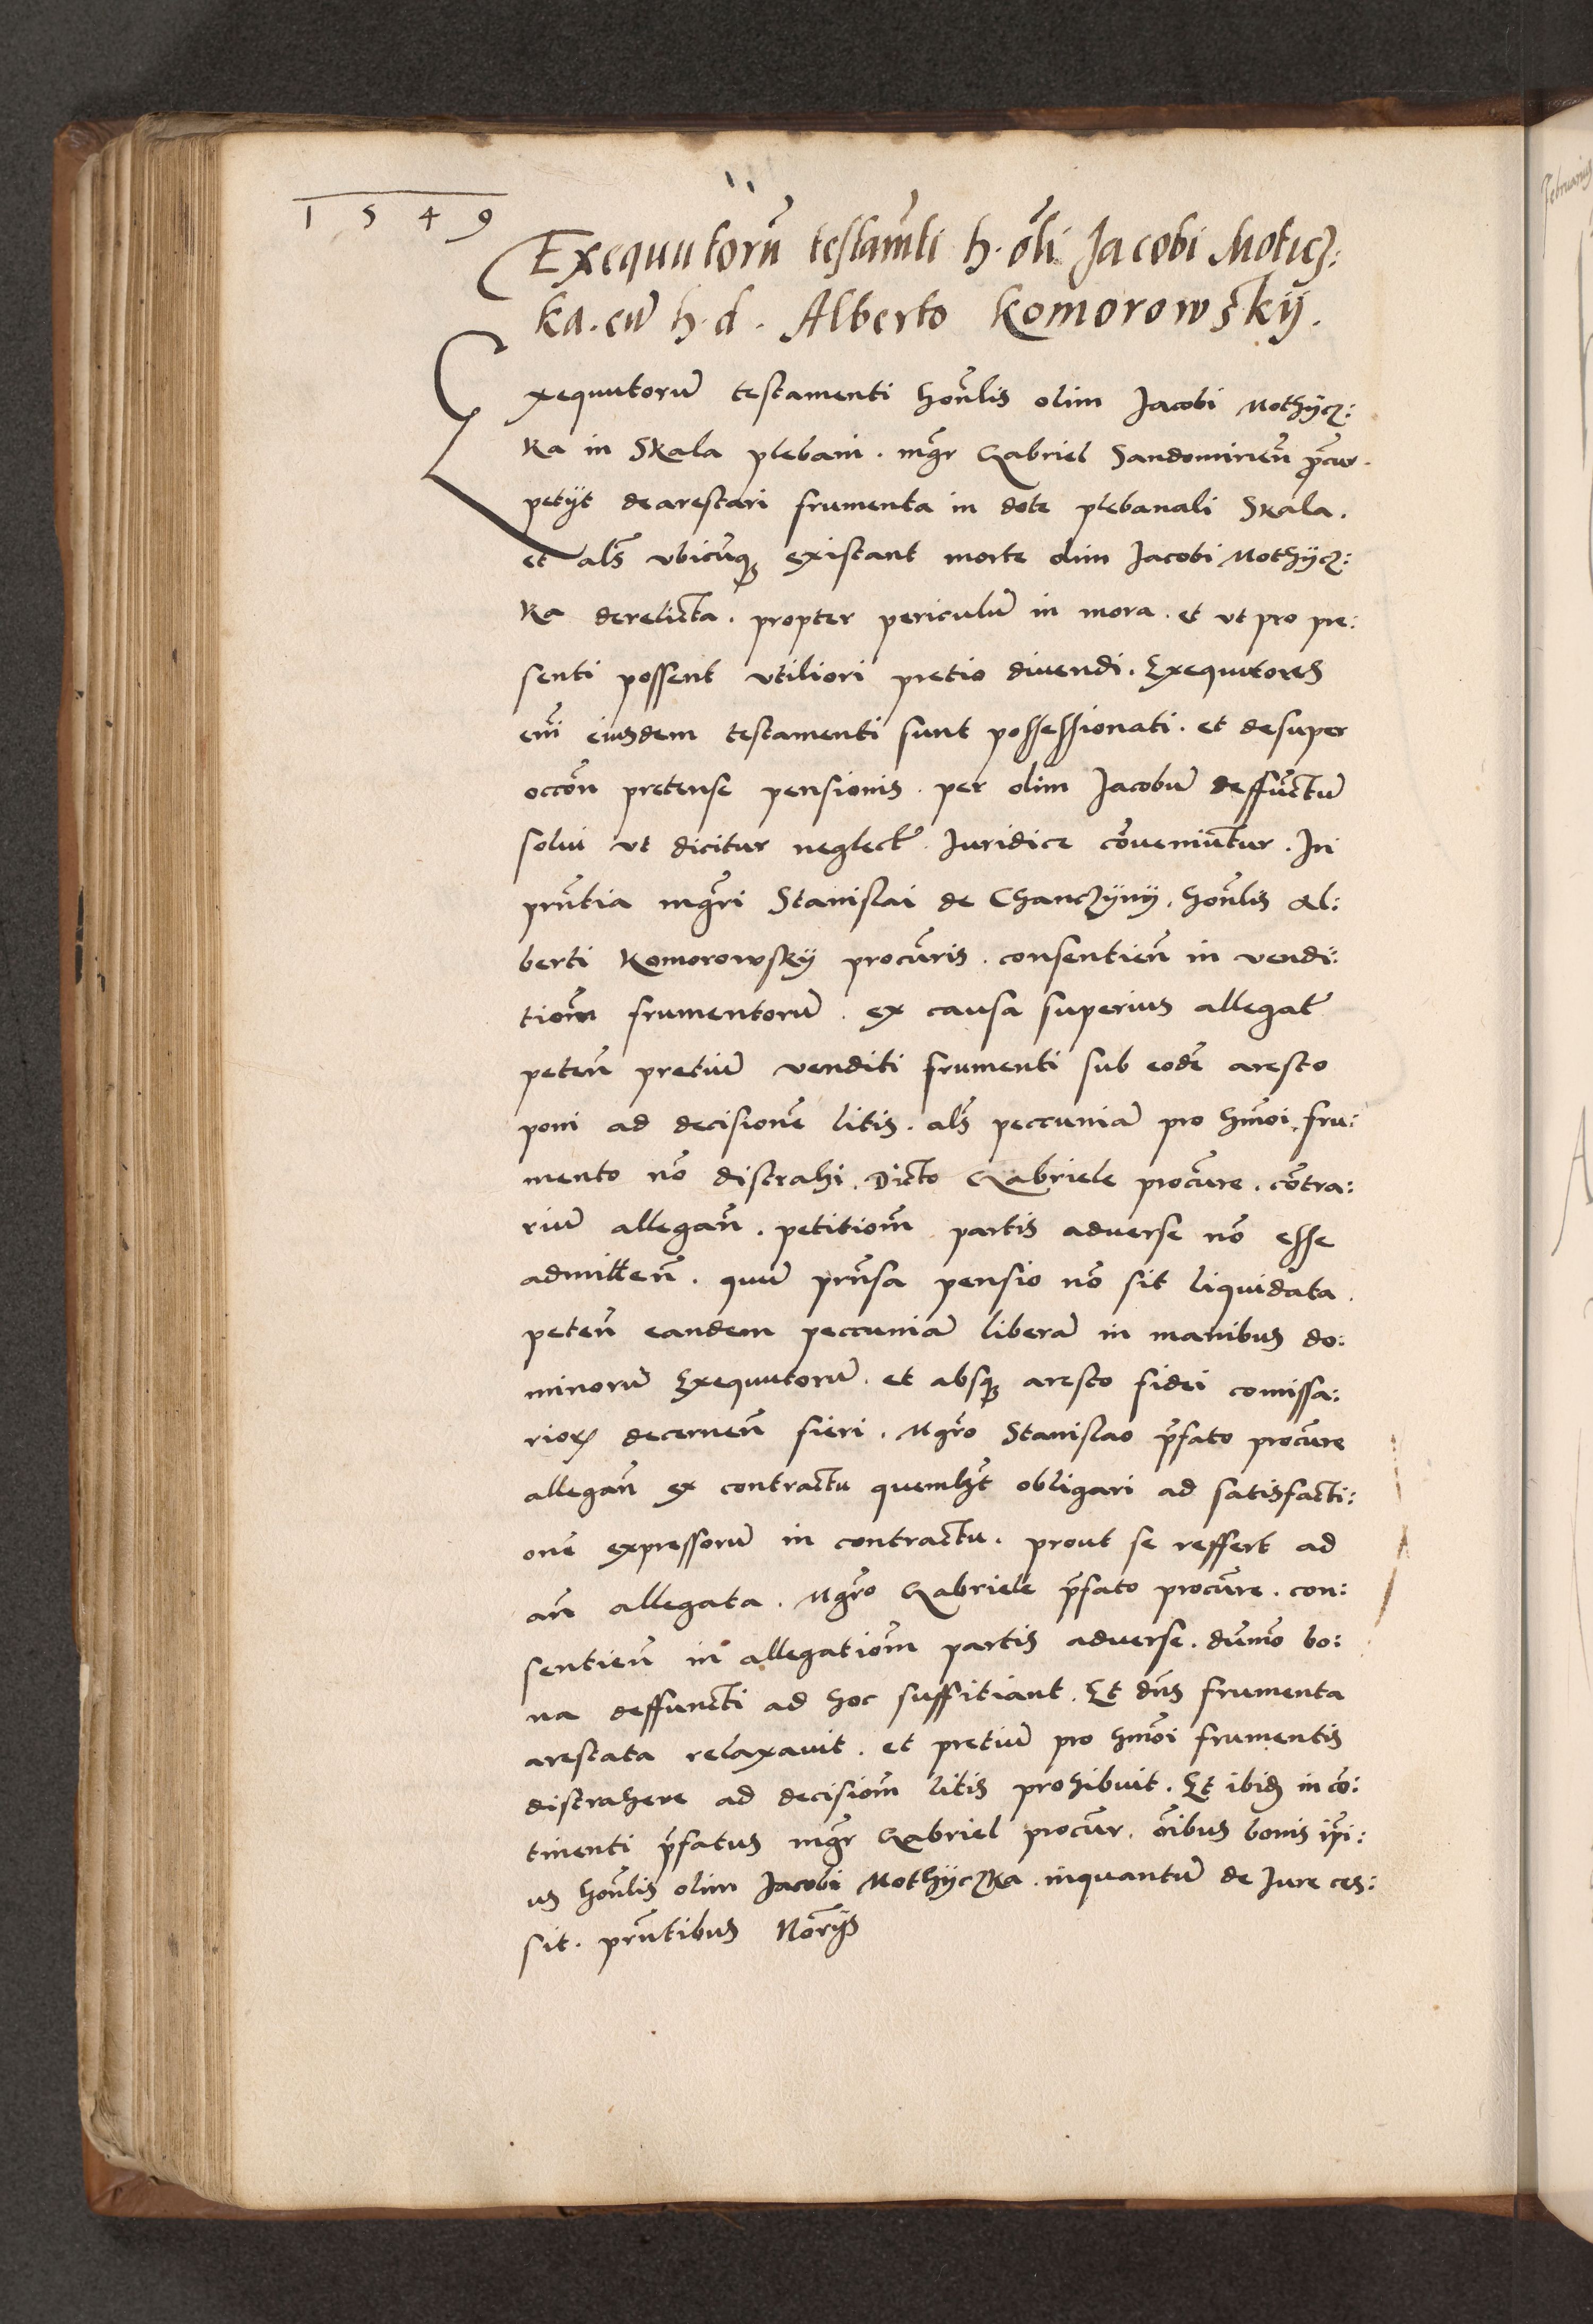 1549
Exequutorū testam̄ti h. ōli Jacobi Moticz:
ka. cū h. d. Alberto Komorowskÿ.
Exequutorū testamenti hon̄lis olim Jacobi Mothÿcz:
ka in Skala plebani. mgr̄ Gabriel Sandomirien̄ p̄cur.
petÿt dearestari frumenta in dote plebanali Skala.
et al̄s vbicūq; existant morte olim Jacobi Mothÿcz:
ka derelicta. propter periculū in mora. et vt pro pre:
senti possent vtiliori pretio divendi. Exequutores
em̄ eiusdem testamenti sunt possessionati. et desuper
occōn pretense pensionis. per olim Jacobū deffūctū
solui vt dicitur neglect̄ Juridice cōveniūtur. In
prn̄tia mgr̄i Stanislai de Chanczÿnÿ. hon̄lis Al:
berti Komorowskÿ procūris. consentien̄ in vendi:
tiōm frumentorū. ex causa superius allegat̄
peten̄ pretiū venditi frumenti sub eodē aresto
poni ad decisionē litis. al̄s peccuniā pro hm̄oi fru:
mento nō distrahi. Dicto Gabriele procūre. cōtra:
riū allegan̄. petitiōm partis adverse nō esse
admitten̄. quū prn̄sa pensio nō sit liquidata.
peten̄ eandem peccuniā liberā in manibus do:
minorū Exequutorū. et absq; aresto fidei comissa:
rioꝝ decernen̄ fieri. Mgr̄o Stanislao p̄fato procūre
allegan̄ ex contractu quemlꝫt obligari ad satisfacti:
onē expressorū in contractu. prout se reffert ad
an̄ allegata. Mgr̄o Gabriele p̄fato procūre. con:
sentien̄ in allegatiōm partis adverse. dūmō bo:
na deffuncti ad hoc suffitiant. Et dn̄s frumenta
arestata relaxavit. et pretiū pro hm̄oi frumentis
distrahere ad decisiōm litis prohibuit. Et ibidꝫ in cō:
tinenti p̄fatus mgr̄ Gabriel procūr. ōibus bonis ip̄i:
us hon̄lis olim Jacobi Mothÿczka. inquantū de Jure ces:
sit. prn̄tibus Nōrijs